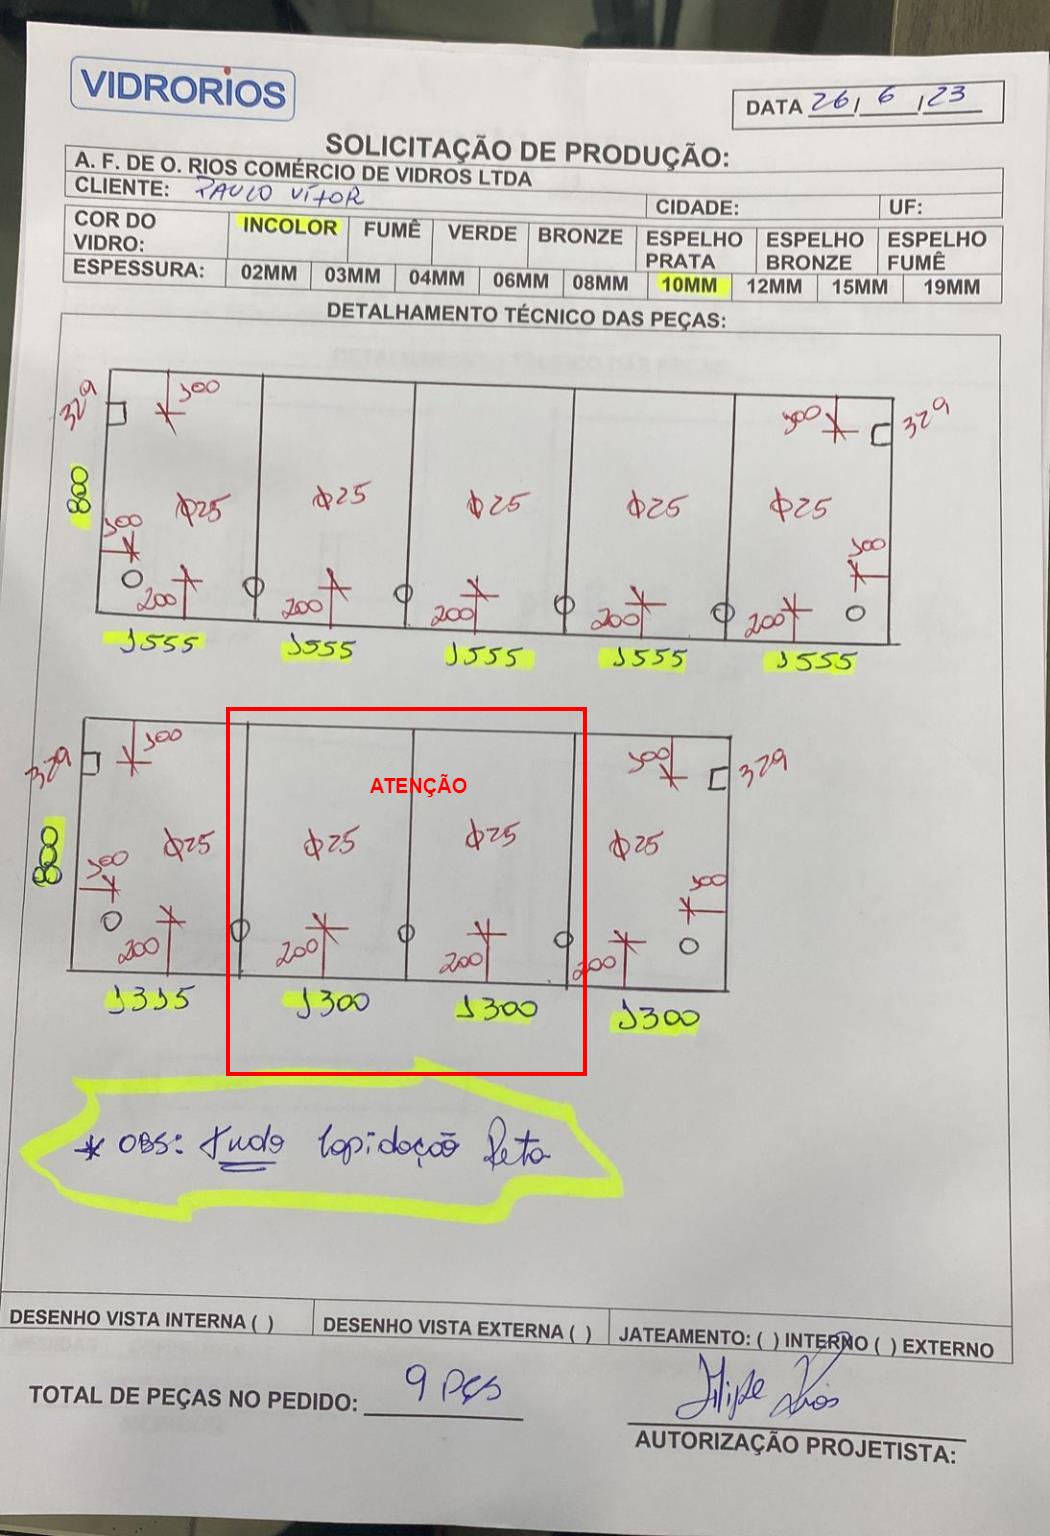 VIDRORIOS
DATA 26/6/23
SOLICITAÇÃO DE PRODUÇÃO:
A. F. DE O. RIOS COMÉRCIO DE VIDROS LTDA
CLIENTE: PAULO VITOR CIDADE: UF:
COR DO VIDRO: INCOLOR FUMÊ VERDE BRONZE ESPELHO PRATA ESPELHO BRONZE ESPELHO FUMÊ
ESPESSURA: 02MM 03MM 04MM 06MM 08MM 10MM 12MM 15MM 19MM
DETALHAMENTO TÉCNICO DAS PEÇAS:
329 300 300 329
800 φ25 φ25 φ25 φ25 φ25
300 300
200 200 200 200 200
1555 1555 1555 1555 1555
329 300 300 329
ATENÇÃO
800 φ25 φ25 φ25 φ25
300 300
200 200 200 200
1315 1300 1300 1300
* OBS: tudo lapidação Reta
DESENHO VISTA INTERNA ( ) DESENHO VISTA EXTERNA ( ) JATEAMENTO: ( ) INTERNO ( ) EXTERNO
TOTAL DE PEÇAS NO PEDIDO: 9 PÇS
Filipe Rios
AUTORIZAÇÃO PROJETISTA: